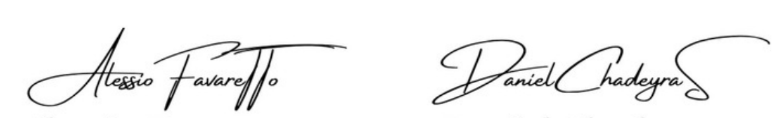 Alessio Favaretto
Daniel Chadeyras